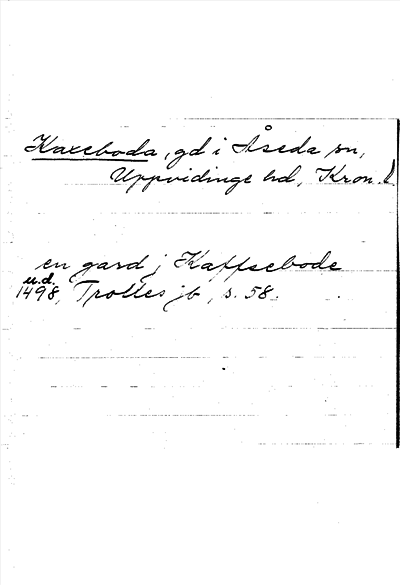 Kaxeboda, gd i Åseda sn,
Uppvidinge hd, Kron. l.
en gard j Kaffsebode
u.d.
1498, Trolles jb, s. 58.